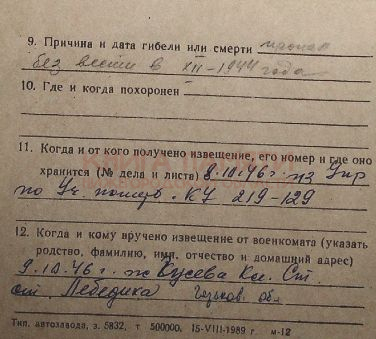 9. Причина и дата гибели или смерти пропал
без вести в XII-1944 года
10. Где и когда похоронен
11. Когда и от кого получено извещение, его номер и где оно
хранится (№ дела и листа) 8.10.46 г. из Упр
по Уч. погиб. КУ 219-129
12. Когда и кому вручено извещение от военкомата (указать
родство, фамилию, имя, отчество и домашний адрес)
9.10.46 г. ж Ст.
ст. Горьков. обл.
Тип. автозавода, з. 5832, т 500000. 15-VIII-1989 г. м-12